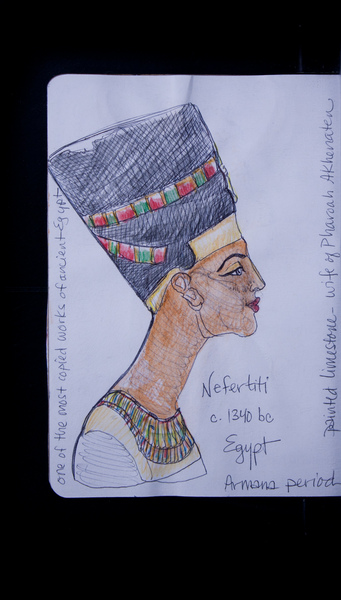 one of the most copied works of ancient Egypt
Nefertiti
c. 1340 bc
Egypt
Armana period
painted limestone - wife of Pharoah Akhenaten